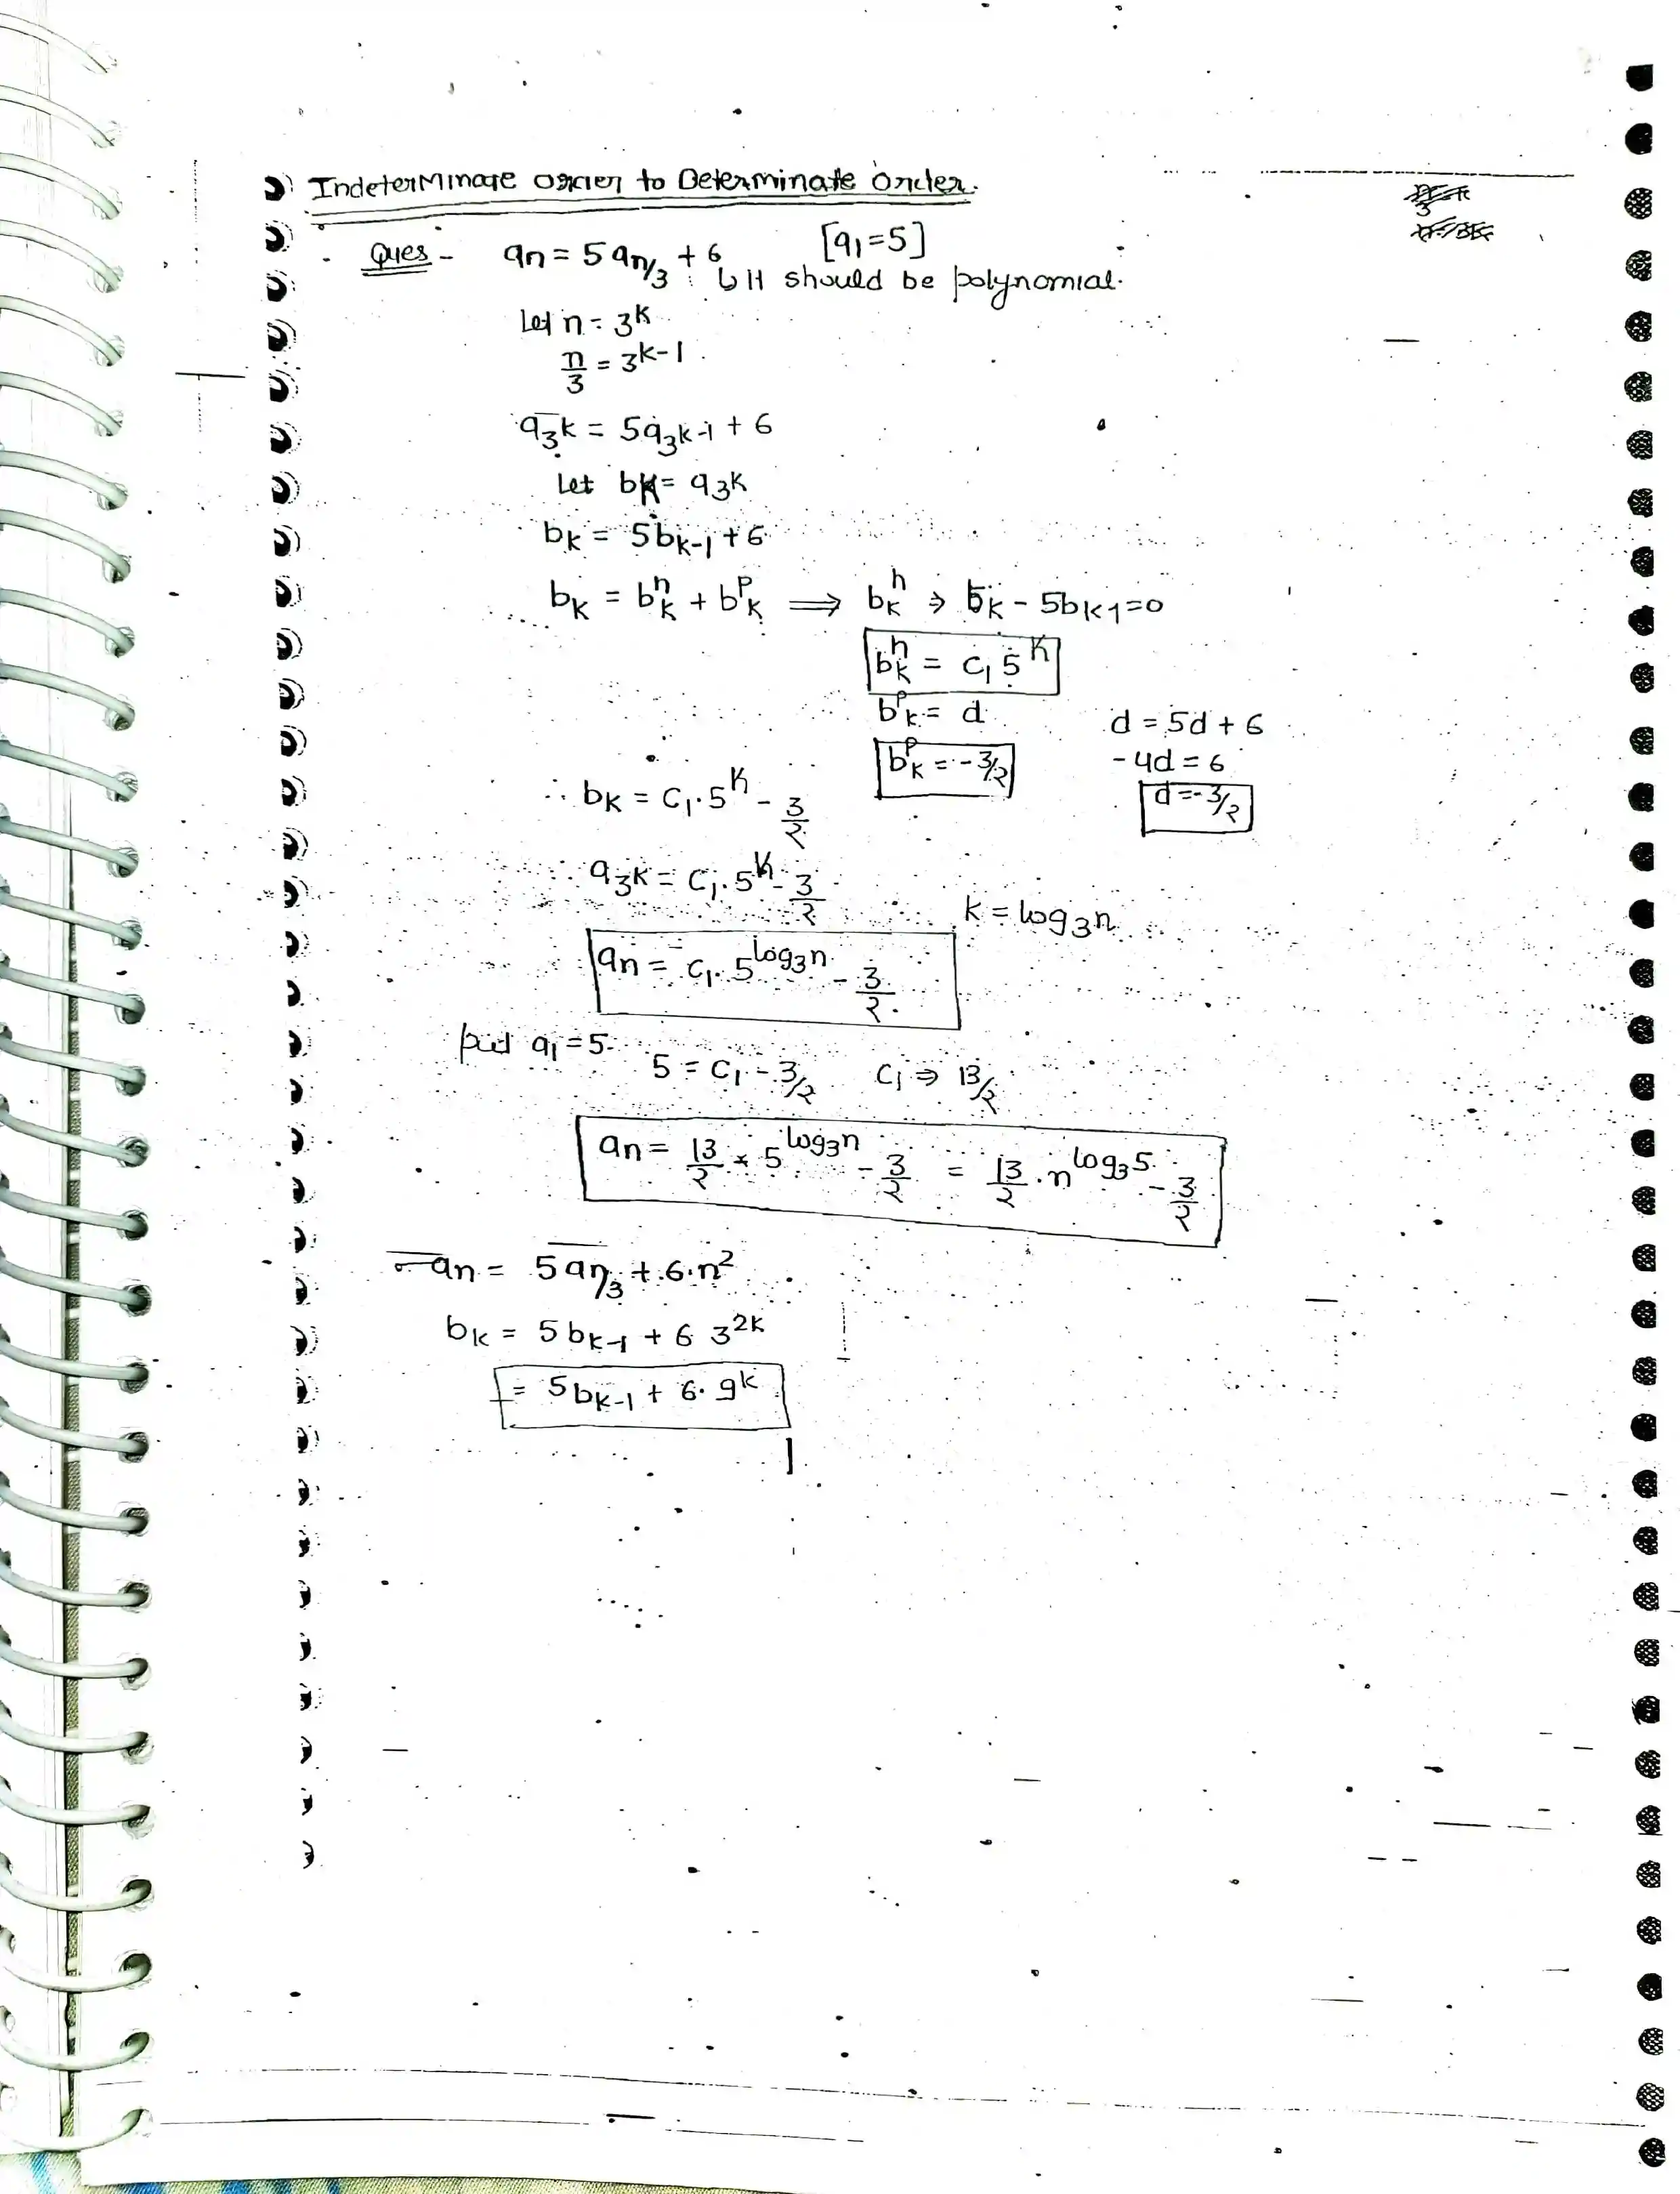 Indeterminate order to Determinate order.
Ques - an = 5 an/3 + 6 [a1 = 5]
↳ It should be polynomial.
Let n = 3^k
n/3 = 3^k-1
a3^k = 5a3^k-1 + 6
Let bk = a3^k
bk = 5bk-1 + 6
bk = bk^h + bk^p ⟹ bk^h ⇒ bk - 5bk-1 = 0
bk^h = c1 5^k
bk^p = d d = 5d + 6
bk^p = -3/2 -4d = 6
∴ bk = c1. 5^k - 3/2 d = -3/2
a3^k = c1. 5^k - 3/2
k = log3n
an = c1. 5^log3n - 3/2
put a1 = 5
5 = c1 - 3/2 c1 ⇒ 13/2
an = 13/2 * 5^log3n - 3/2 = 13/2 . n^log35 - 3/2
an = 5 an/3 + 6.n^2
bk = 5 bk-1 + 6 3^2k
= 5bk-1 + 6. 9^k